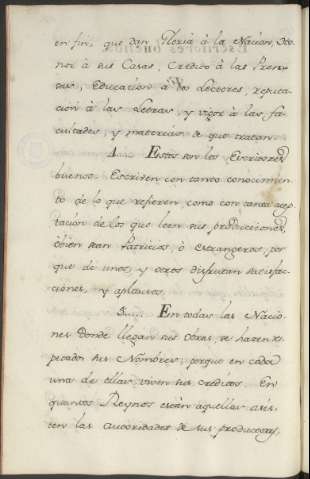 en fin, que dan Gloria à la Nacion, Ho-
nor à sus Casas, Credito à las Pren-
sas, Educacion à los Lectores, reputa-
cion à las Letras, y vigor à las fa-
cultades, y materias de que tratan.
4.. Estos son los Escritores
buenos. Escriven con tanto conocimien-
to de lo que refieren, como con tanta acep-
tacion de los que leen sus producciones,
ò bien sean Patricios, ò estrangeros, por
que de unos, y otros disfrutan satisfac-
ciones, y aplausos.
5.... En todas las Nacio-
nes donde llegan sus Obras, se hacen res-
petados sus Nombres; porque en cada
una de ellas, viven sus creditos. En
quantos Reynos están aquellas, exis-
ten las autoridades de sus productores,